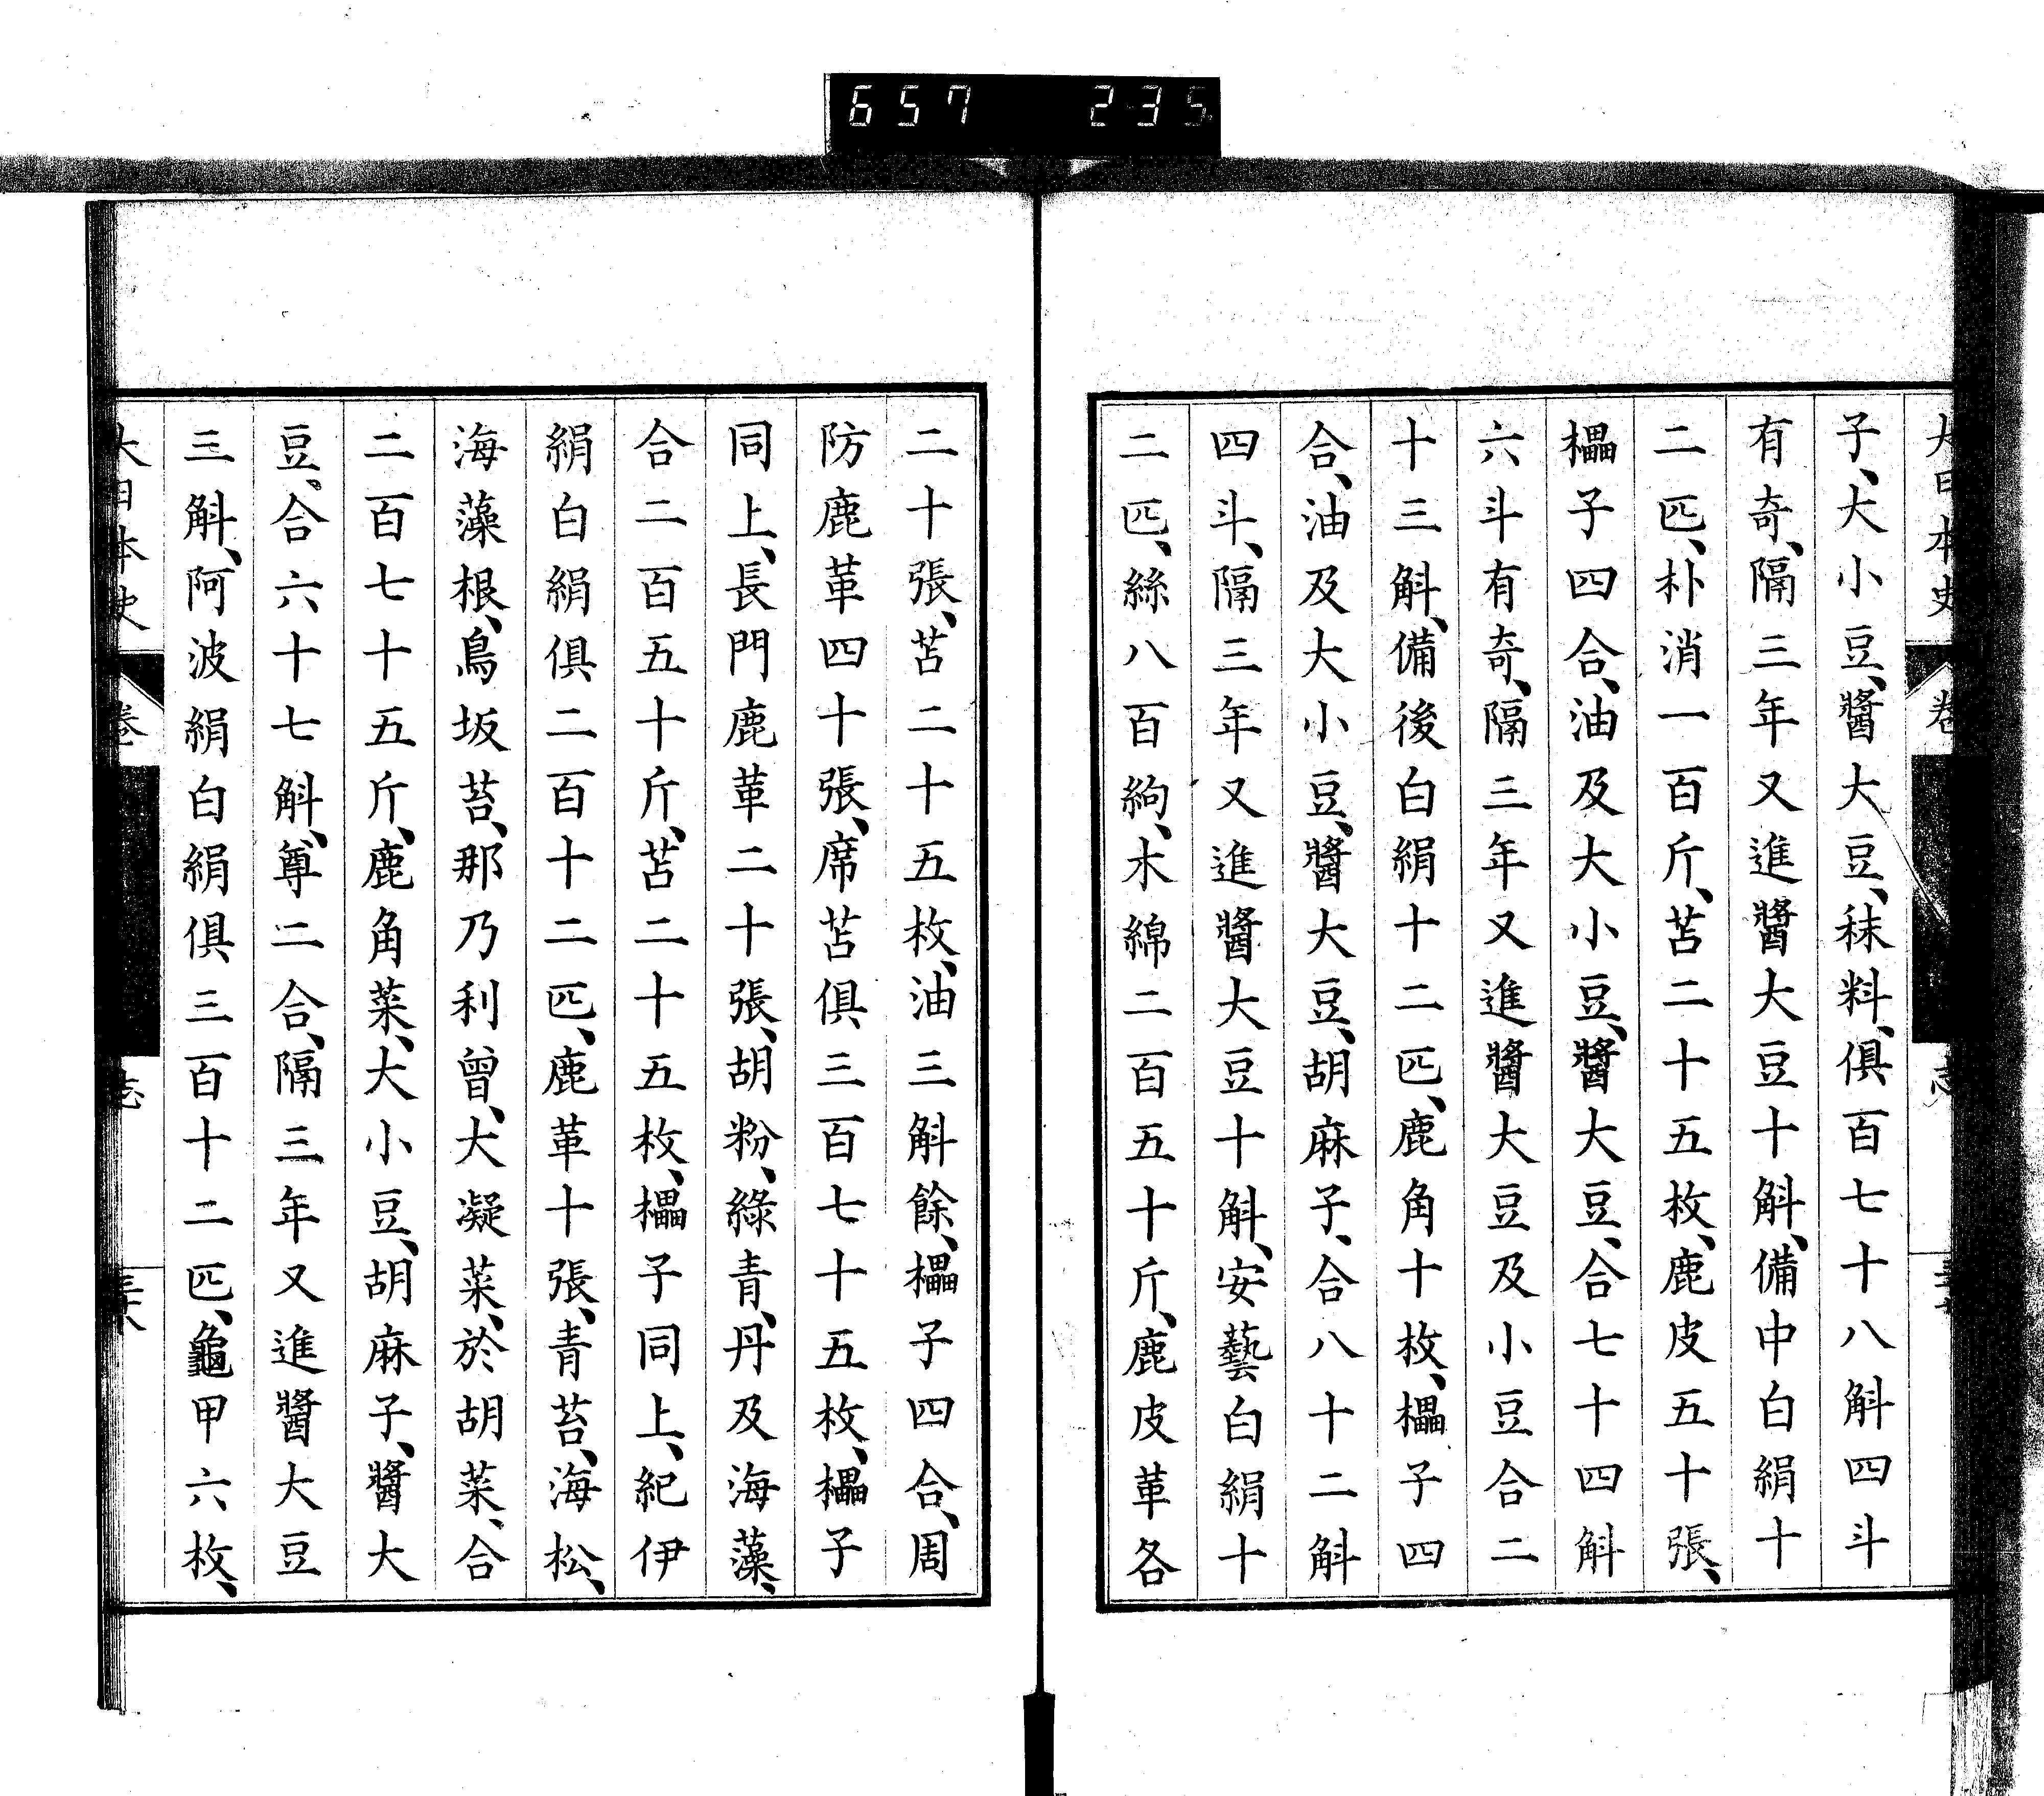 657 235
大日本史 卷 志
子、大小豆、醬大豆、秣料、俱百七十八斛四斗
有奇、隔三年又進醬大豆十斛、備中白絹十
二匹、朴消一百斤、苫二十五枚、鹿皮五十張、
櫑子四合、油及大小豆、醬大豆、合七十四斛
六斗有奇、隔三年又進醬大豆及小豆合二
十三斛、備後白絹十二匹、鹿角十枚、櫑子四
合、油及大小豆、醬大豆、胡麻子、合八十二斛
四斗、隔三年又進醬大豆十斛、安藝白絹十
二匹、絲八百絇、木綿二百五十斤、鹿皮革各
二十張、苫二十五枚、油三斛餘、櫑子四合、周
防鹿革四十張、席苫俱三百七十五枚、櫑子
同上、長門鹿革二十張、胡粉、綠青、丹及海藻、
合二百五十斤、苫二十五枚、櫑子同上、紀伊
絹白絹俱二百十二匹、鹿革十張、青苔、海松、
海藻根、鳥坂苔、那乃利曾、大凝菜、於胡菜、合
二百七十五斤、鹿角菜、大小豆、胡麻子、醬大
豆、合六十七斛、尊二合、隔三年又進醬大豆
三斛、阿波絹白絹俱三百十二匹、龜甲六枚、
大日本史 卷 志